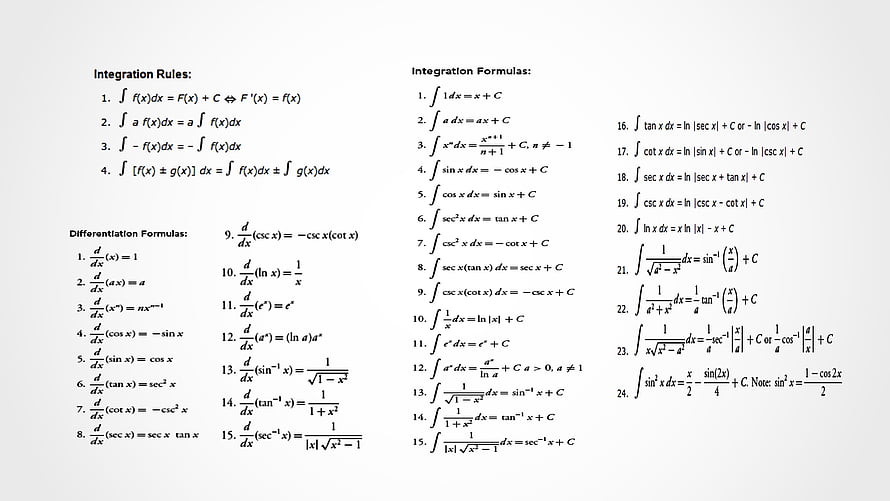 Integration Rules:
1. ∫ f(x)dx = F(x) + C ⇔ F '(x) = f(x)
2. ∫ a f(x)dx = a ∫ f(x)dx
3. ∫ - f(x)dx = - ∫ f(x)dx
4. ∫ [f(x) ± g(x)] dx = ∫ f(x)dx ± ∫ g(x)dx
Differentiation Formulas:
1. d/dx (x) = 1
2. d/dx (ax) = a
3. d/dx (xⁿ) = nxⁿ⁻¹
4. d/dx (cos x) = −sin x
5. d/dx (sin x) = cos x
6. d/dx (tan x) = sec² x
7. d/dx (cot x) = −csc² x
8. d/dx (sec x) = sec x tan x
9. d/dx (csc x) = −csc x(cot x)
10. d/dx (ln x) = 1/x
11. d/dx (eˣ) = eˣ
12. d/dx (aˣ) = (ln a)aˣ
13. d/dx (sin⁻¹ x) = 1/√(1 − x²)
14. d/dx (tan⁻¹ x) = 1/(1 + x²)
15. d/dx (sec⁻¹ x) = 1/(|x| √(x² − 1))
Integration Formulas:
1. ∫ 1 dx = x + C
2. ∫ a dx = ax + C
3. ∫ xⁿ dx = xⁿ⁺¹/(n + 1) + C, n ≠ −1
4. ∫ sin x dx = − cos x + C
5. ∫ cos x dx = sin x + C
6. ∫ sec² x dx = tan x + C
7. ∫ csc² x dx = − cot x + C
8. ∫ sec x(tan x) dx = sec x + C
9. ∫ csc x(cot x) dx = −csc x + C
10. ∫ 1/x dx = ln |x| + C
11. ∫ eˣ dx = eˣ + C
12. ∫ aˣ dx = aˣ/ln a + C a > 0, a ≠ 1
13. ∫ 1/√(1 − x²) dx = sin⁻¹ x + C
14. ∫ 1/(1 + x²) dx = tan⁻¹ x + C
15. ∫ 1/(|x| √(x² − 1)) dx = sec⁻¹ x + C
16. ∫ tan x dx = ln |sec x| + C or - ln |cos x| + C
17. ∫ cot x dx = ln |sin x| + C or - ln |csc x| + C
18. ∫ sec x dx = ln |sec x + tan x| + C
19. ∫ csc x dx = ln |csc x - cot x| + C
20. ∫ ln x dx = x ln |x| - x + C
21. ∫ 1/√(a² − x²) dx = sin⁻¹ (x/a) + C
22. ∫ 1/(a² + x²) dx = 1/a tan⁻¹ (x/a) + C
23. ∫ 1/(x√(x² − a²)) dx = 1/a sec⁻¹ |x/a| + C or 1/a cos⁻¹ |a/x| + C
24. ∫ sin² x dx = x/2 − sin(2x)/4 + C. Note: sin² x = (1 − cos 2x)/2